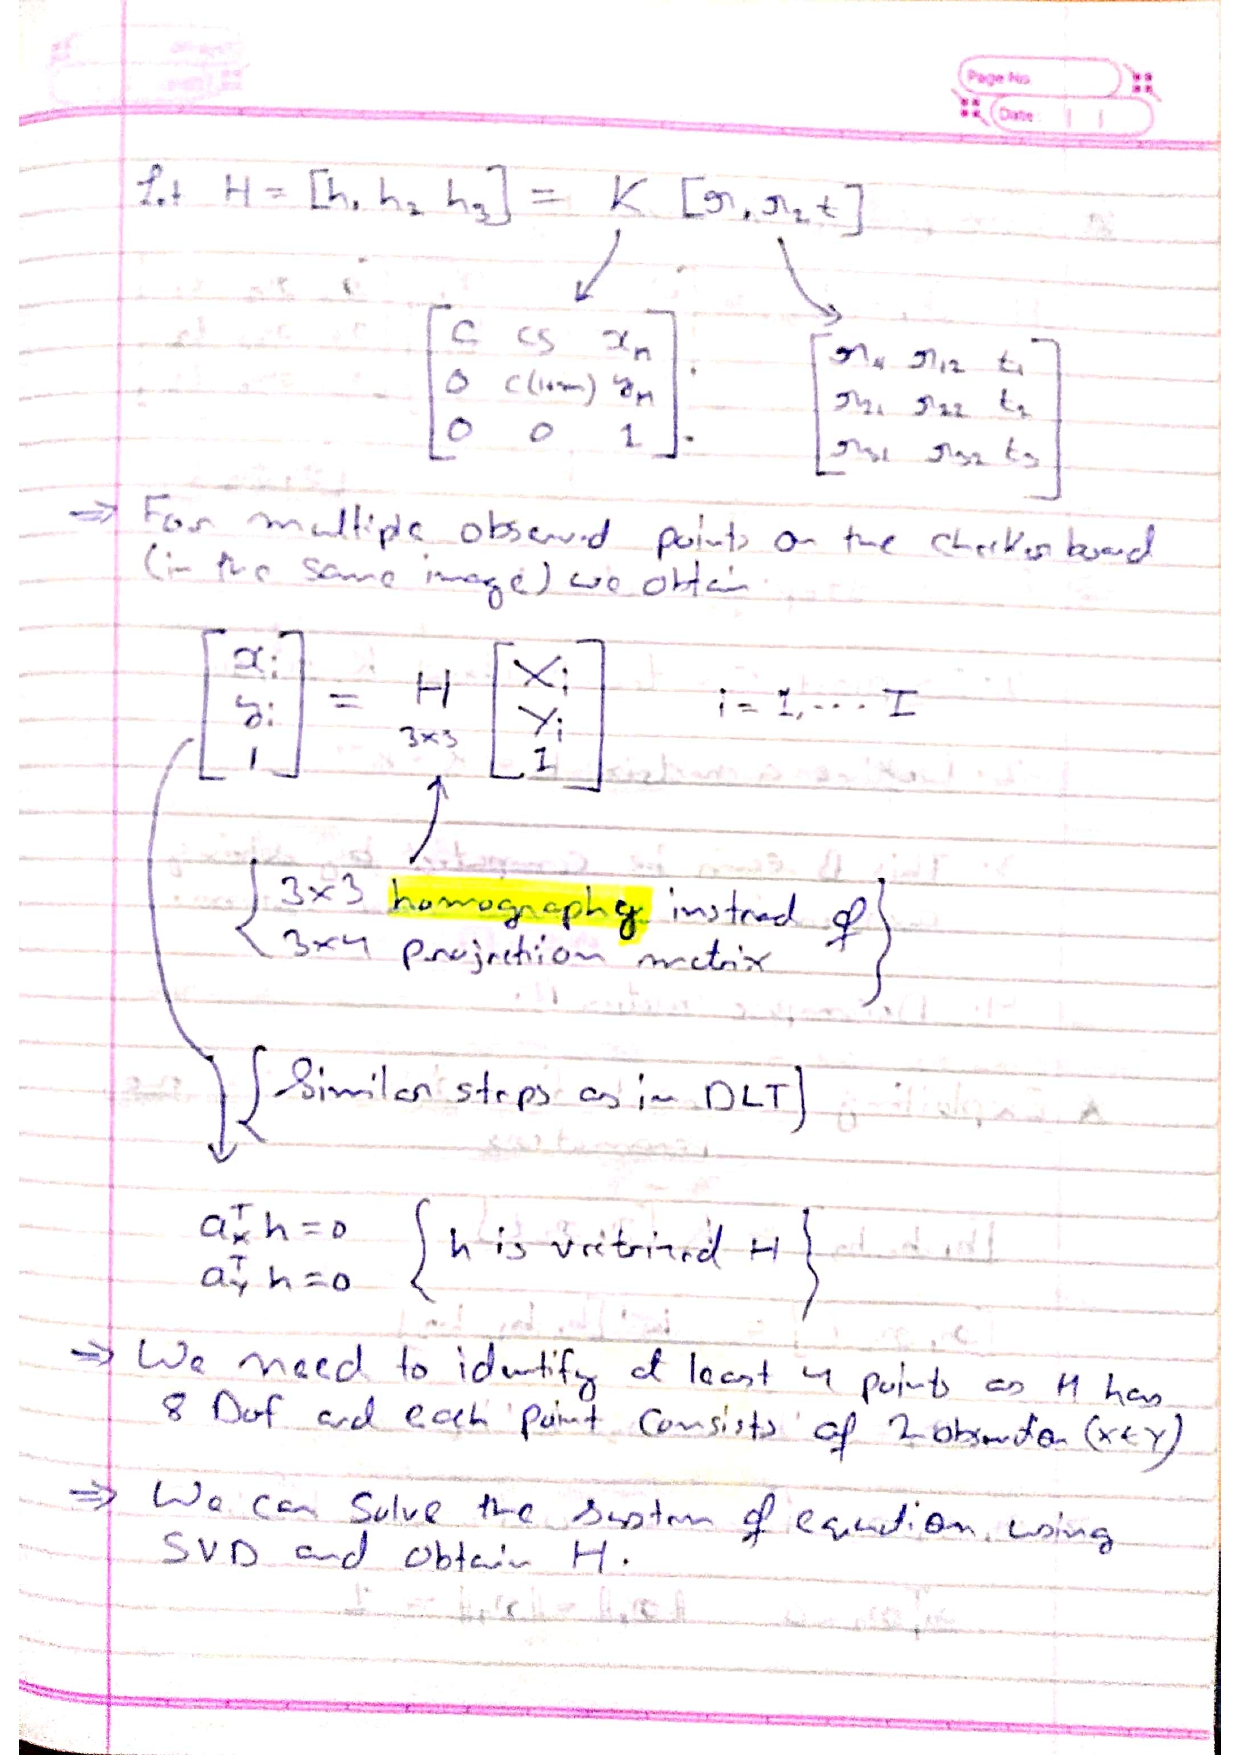 Page No.
Date: | |
Let H = [h₁ h₂ h₃] = K [r₁ r₂ t]
[C cs xₕ] . [r₁₁ r₁₂ t₁]
[0 c(1+m) yₕ] [r₂₁ r₂₂ t₂]
[0 0 1] . [r₃₁ r₃₂ t₃]
⇒ For multiple observed points on the checkerboard
(in the same image) we obtain
[xᵢ] [Xᵢ]
[yᵢ] = H [Yᵢ] i = 1, ... I
[1] 3×3 [1]
{3×3 homography instead of
3×4 projection matrix}
{Similar steps as in DLT}
aₓᵀ h = 0 {h is vectorized H}
aᵧᵀ h = 0
⇒ We need to identify at least 4 points as H has
8 Dof and each point consists of 2 observation (x & y)
⇒ We can solve the system of equation using
SVD and obtain H.